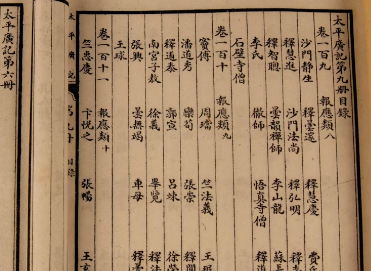 太平廣記第九冊目錄
卷一百九 報應類八
沙門靜生 釋曇邃 釋慧慶 費氏
釋慧進 沙門法尚 釋弘明 釋
釋智聰 曇韻禪師 李山龍 蘇
李氏 徹師 悟真寺僧 釋道
石壁寺僧
卷一百十 報應類九
竇傅 周璫 竺法義 王珉
潘道秀 欒苟 張崇 釋開
釋道泰 郭宣 呂竦 徐榮
南宮子敖 徐義 畢覽 釋法
張興 曇無竭 車母 釋曇
王球
卷一百十一 報應類十
竺惠慶 卞悅之 張暢 王玄
太平廣記 第九冊 目錄
太平廣記第六冊